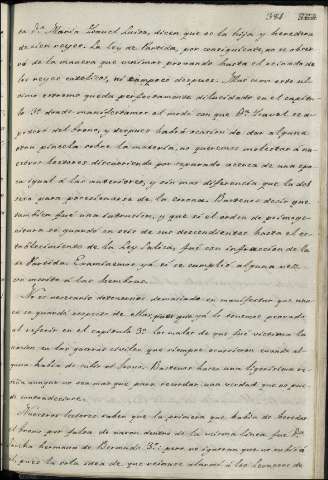 381
ta D.ª María Isabel Luisa, dicen que es la hija y heredera
de cien reyes. La ley de Partida, por consiguiente, no se obser
vó de la manera que venimos probando hasta el reinado de
los reyes católicos, ni tampoco despues. Mas como este úl
timo estremo queda perfectamente dilucidado en el capítu
lo 3º donde manifestamos el modo con que D.ª Isabel se a
poderó del trono, y despues habrá ocasion de dar alguna
otra pincelada sobre la materia, no queremos molestar á nu
estros lectores discurriendo por separado acerca de una épo
ca igual á las anteriores, y sin mas diferencia que la del
sexo para posesionarse de la corona. Bastenos decir que
tambien fue una intrusion, y que si el orden de primoge
nitura se guardó en este de sus descendientes hasta el es
tablecimiento de la Ley Sálica, fué con infraccion de la
de Partida. Examinemos yá si se cumplió alguna vez
con respecto á las hembras.
No es necesario detenernos demasiado en manifestar que nun
ca se guardó respecto de ellas, yá lo tenemos probado
al referir en el capítulo 3º los males de que fué víctima la
nacion en las guerras civiles que siempre ocurrieron cuando al
guna habia de subir al trono. Bastenos hacer una ligerísima re
seña aunque no sea mas que para recordar una verdad que no pue
de contradecirse.
Nuestros lectores saben que la primera que habia de heredar
el trono por falta de varon dentro de la misma línea fue D.ª
Sancha hermana de Bermudo 3º; pero no ignoran que no subió á
él, pues la sola idea de que reinase alarmó á los leoneses de